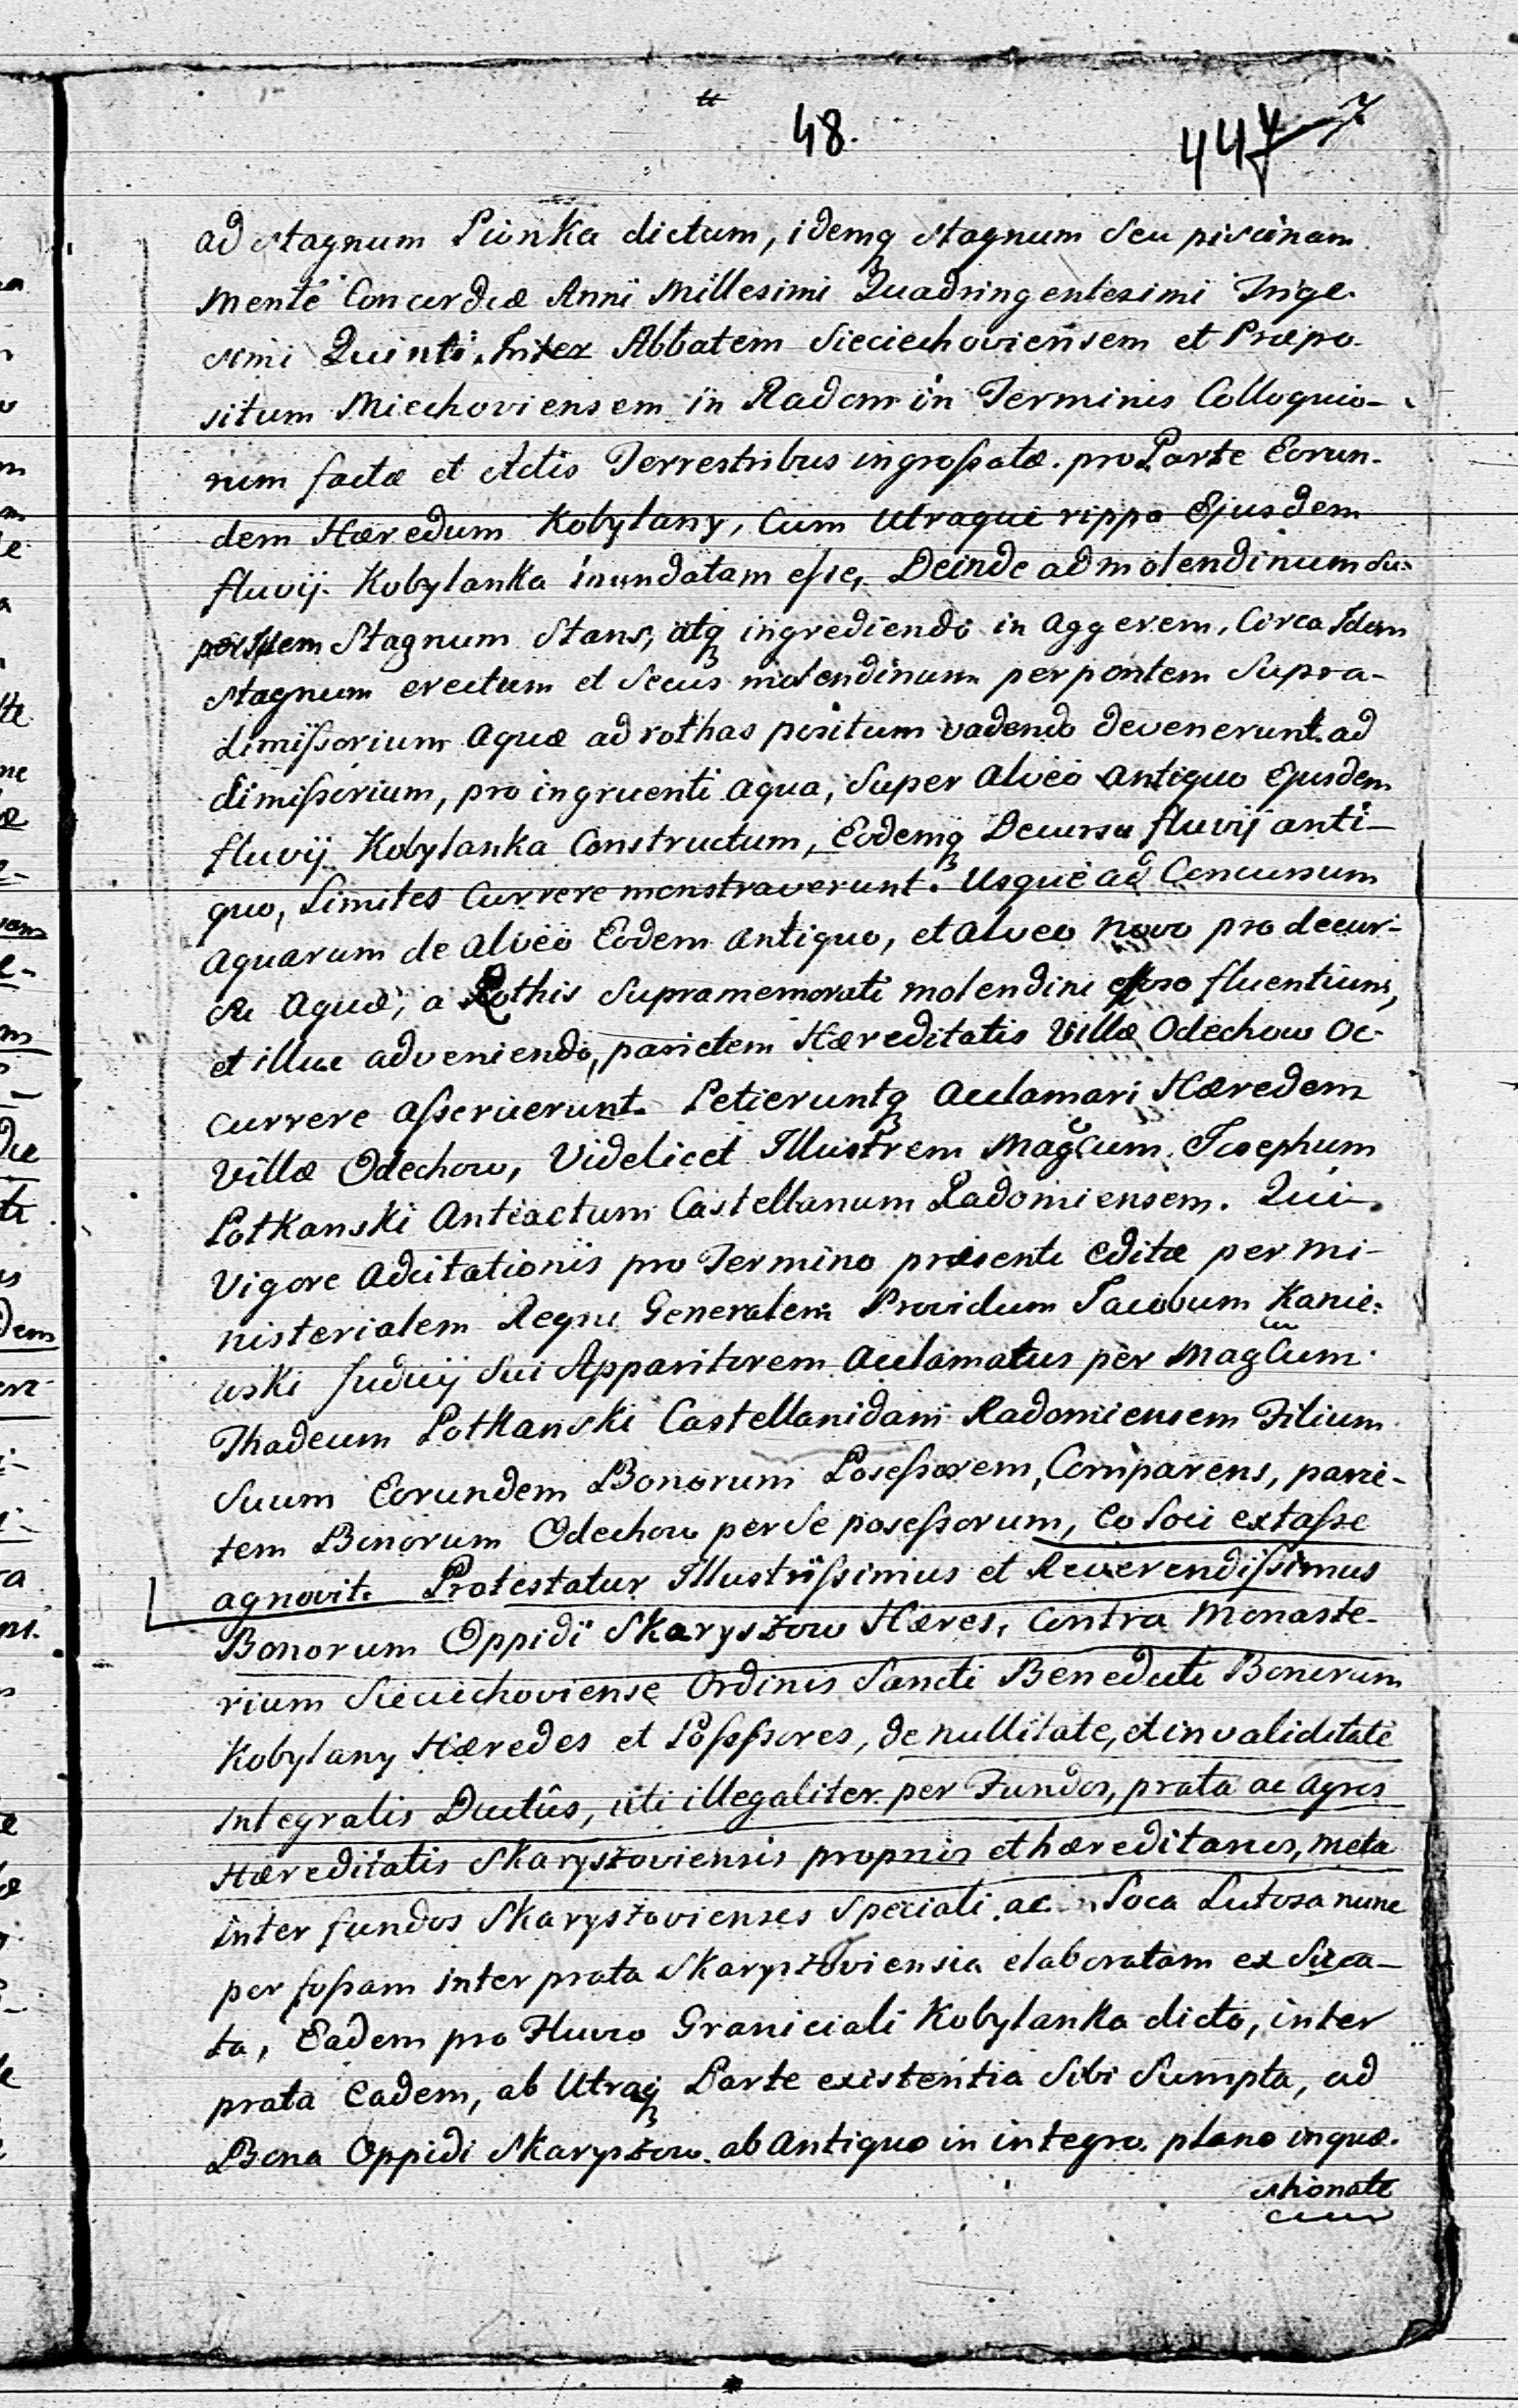 48.
447
ad stagnum Pionka dictum, idemq stagnum seu piscinam
mente Concordiæ Anni Millesimi Quadringentesimi Trige-
simi Quinti. Inter Abbatem Sieciechoviensem et Præpo-
situm Miechoviensem in Radom in Terminis Colloquio-
rum factæ et Actis Terrestribus ingrossatæ. pro Parte Eorun-
dem Hæredum Kobylany, Cum Utraque rippa Ejusdem
fluvij Kobylanka inundatam esse, Deinde ad molendinum Su-
per Stagnum Stans, atq ingrediendo in Aggerem, Circa Idem
stagnum erectum et Secus molendinum per pontem Supra-
dimissorium Aquæ ad rothas positum vadendo devenerunt ad
dimissorium, pro ingruenti Aqua, Super Alveo Antiquo Ejusdem
fluvij Kobylanka Constructum, Eodemq Decursu fluvij anti-
quo, Limites Currere monstraverunt. Usque ad Concursum
Aquarum de Alveo Eodem Antiquo, et Alveo novo pro decur-
su Aquæ, a Rothis Supramemorati molendini fluentium,
et illuc adveniendo, parietem Hæreditatis Villæ Odechow Oc-
currere Asseruerunt. Petieruntq Acclamari Hæredem
Villæ Odechow, Videlicet Illustrem Magcum Josephum
Potkanski Anteactum Castellanum Radomiensem. Qui
Vigore Adcitationis pro Termino præsenti Editæ per Mi-
nisterialem Regni Generalem Providum Jacobum Kanie-
wski Judicij Sui Apparitorem Acclamatus per Magcum
Thadeum Potkanski Castellanidam Radomiensem Filium
Suum Eorundem Bonorum Posessorem, Comparens, parie-
tem Bonorum Odechow per Se posessorum, Eo Loci extasse
agnovit. Protestatur Illustrissimus et Reverendissimus
Bonorum Oppidi Skaryszow Hæres, Contra Monaste-
rium Sieciechoviense Ordinis Sancti Benedicti Bonorum
Kobylany Hæredes et Possssores, de nullitate, et invaliditate
Integralis Ductûs, uti illegaliter per Fundos, prata ac Agros
Hæreditatis Skaryszoviensis proprios et hæreditarios, meta
inter fundos Skaryszovienses Speciali ac Loca Lutosa nunc
per fossam inter prata Skaryszoviensia elaboratam ex Sicca-
ta, Eadem pro Fluvio Graniciali Kobylanka dicto, inter
prata Eadem, ab Utraq Parte existentia Sibi Sumpta, ad
Bona Oppidi Skaryszow ab Antiquo in integro plano inquæ-
stionate